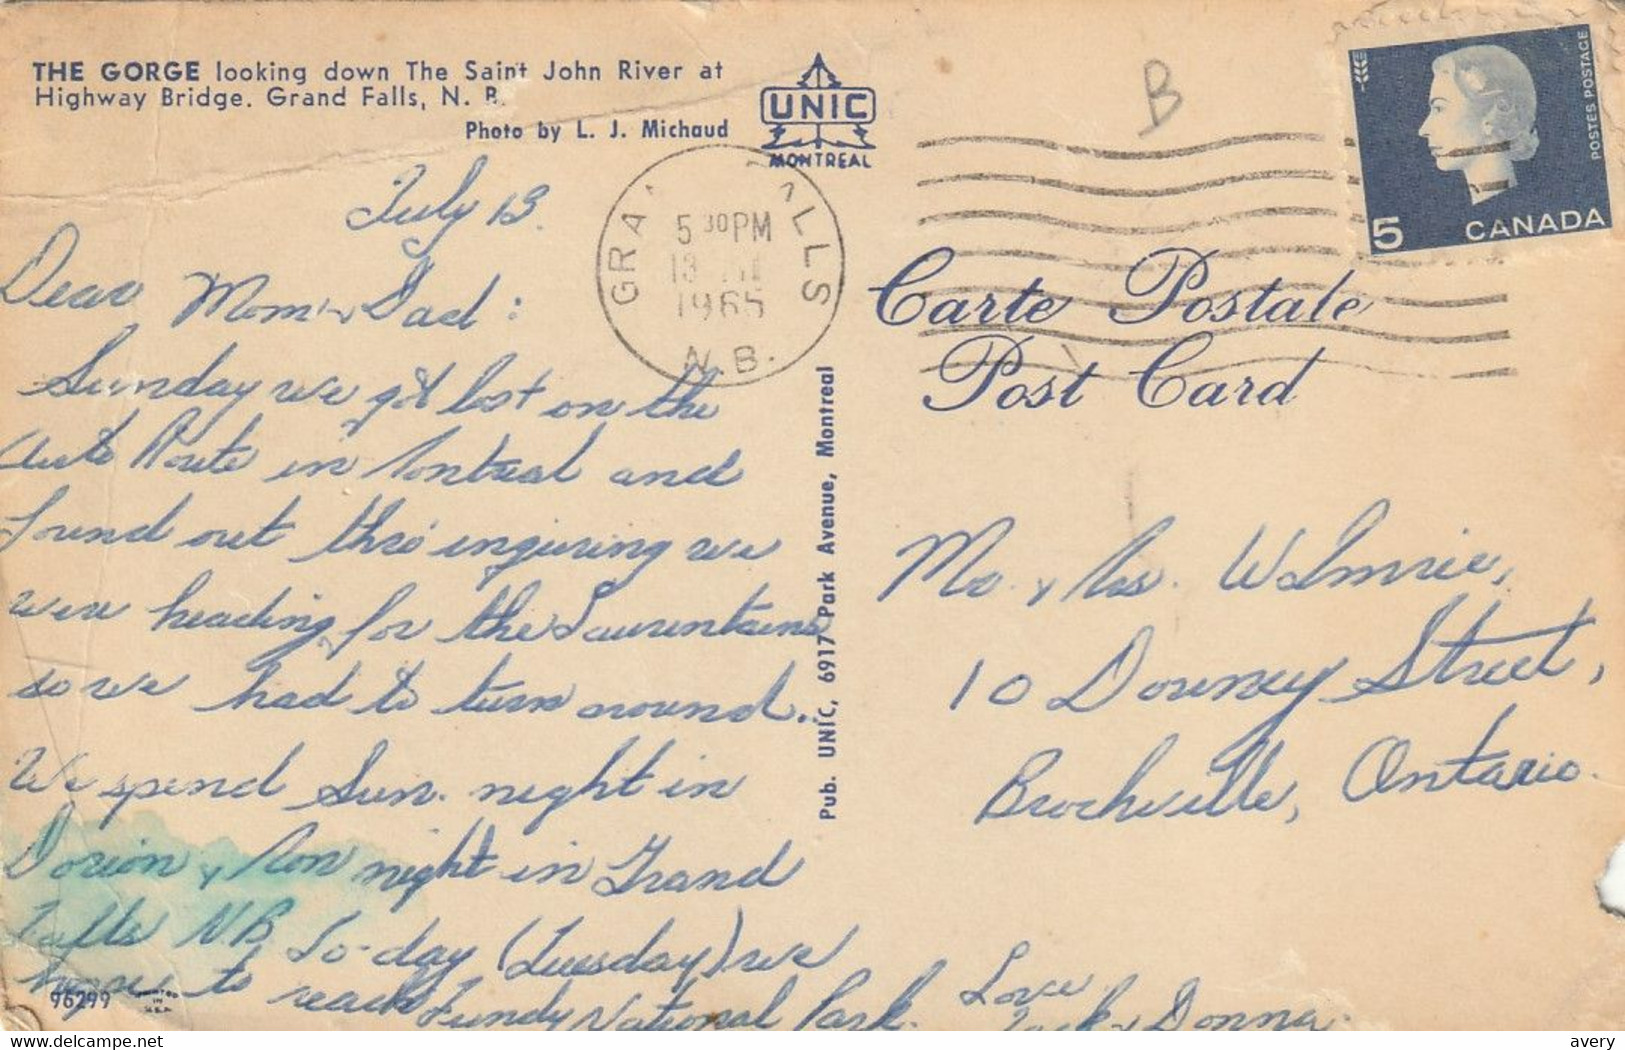 THE GORGE looking down The Saint John River at
Highway Bridge. Grand Falls, N. B.
Photo by L. J. Michaud
UNIC
MONTREAL
B
POSTES POSTAGE
5 CANADA
GRA ALLS
5 30 PM
13
1965
N.B.
Carte Postale
Post Card
July 13.
Dear Mom & Dad:
Sunday we got lost on the
Auto Route in Montreal and
found out thro' inquiring we
were heading for the Laurentians
so we had to turn around..
We spend Sun. night in
Dorion & Mon night in Grand
Falls NB To-day (Tuesday) we
hope to reach Fundy National Park.
Love
Jack & Donna.
Pub. UNIC, 6917 Park Avenue, Montreal
Mr. & Mrs. W Imrie,
10 Downey Street,
Brockville, Ontario.
96299
PRINTED
IN
U.S.A.
avery